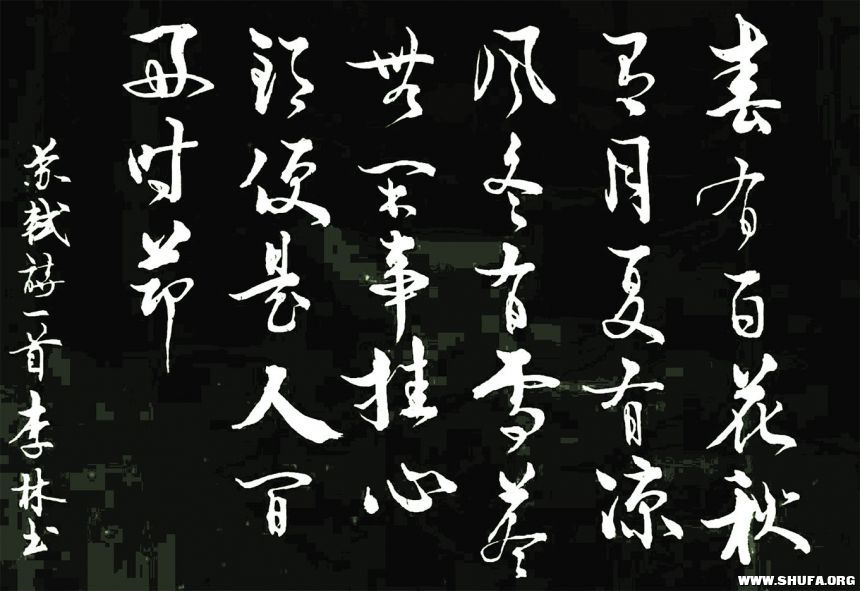 春有百花秋
有月夏有凉
风冬有雪若
無闲事挂心
頭便是人间
好时節
苏轼诗一首 李林书
WWW.SHUFA.ORG